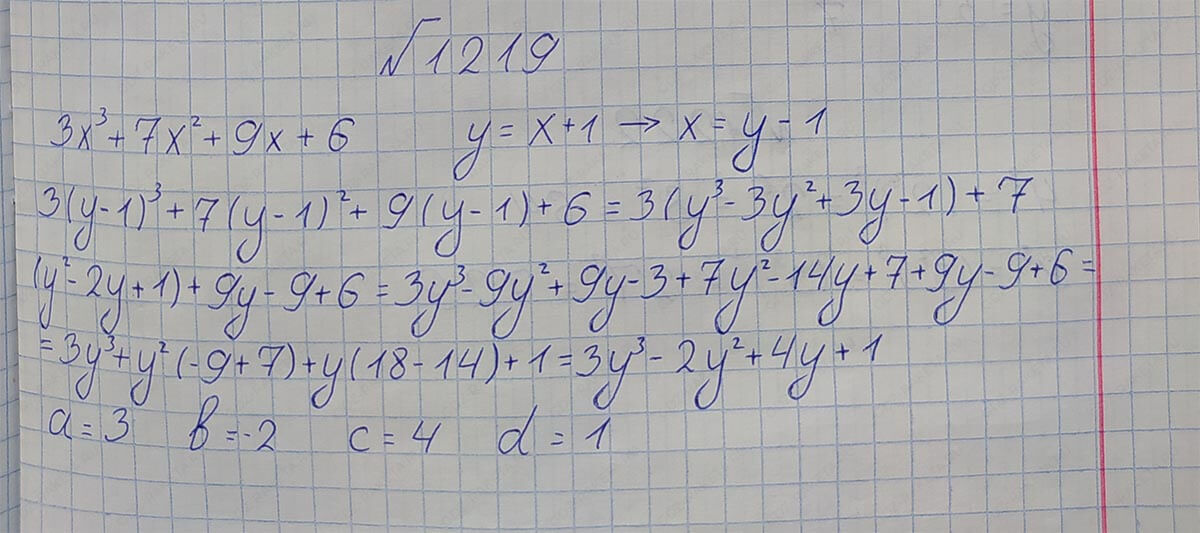 √1219
3x³ + 7x² + 9x + 6 y = x + 1 → x = y - 1
3(y-1)³ + 7(y-1)² + 9(y-1) + 6 = 3(y³ - 3y² + 3y - 1) + 7
(y² - 2y + 1) + 9y - 9 + 6 = 3y³ - 9y² + 9y - 3 + 7y² - 14y + 7 + 9y - 9 + 6 =
= 3y³ + y²(-9+7) + y(18-14) + 1 = 3y³ - 2y² + 4y + 1
a = 3 b = -2 c = 4 d = 1